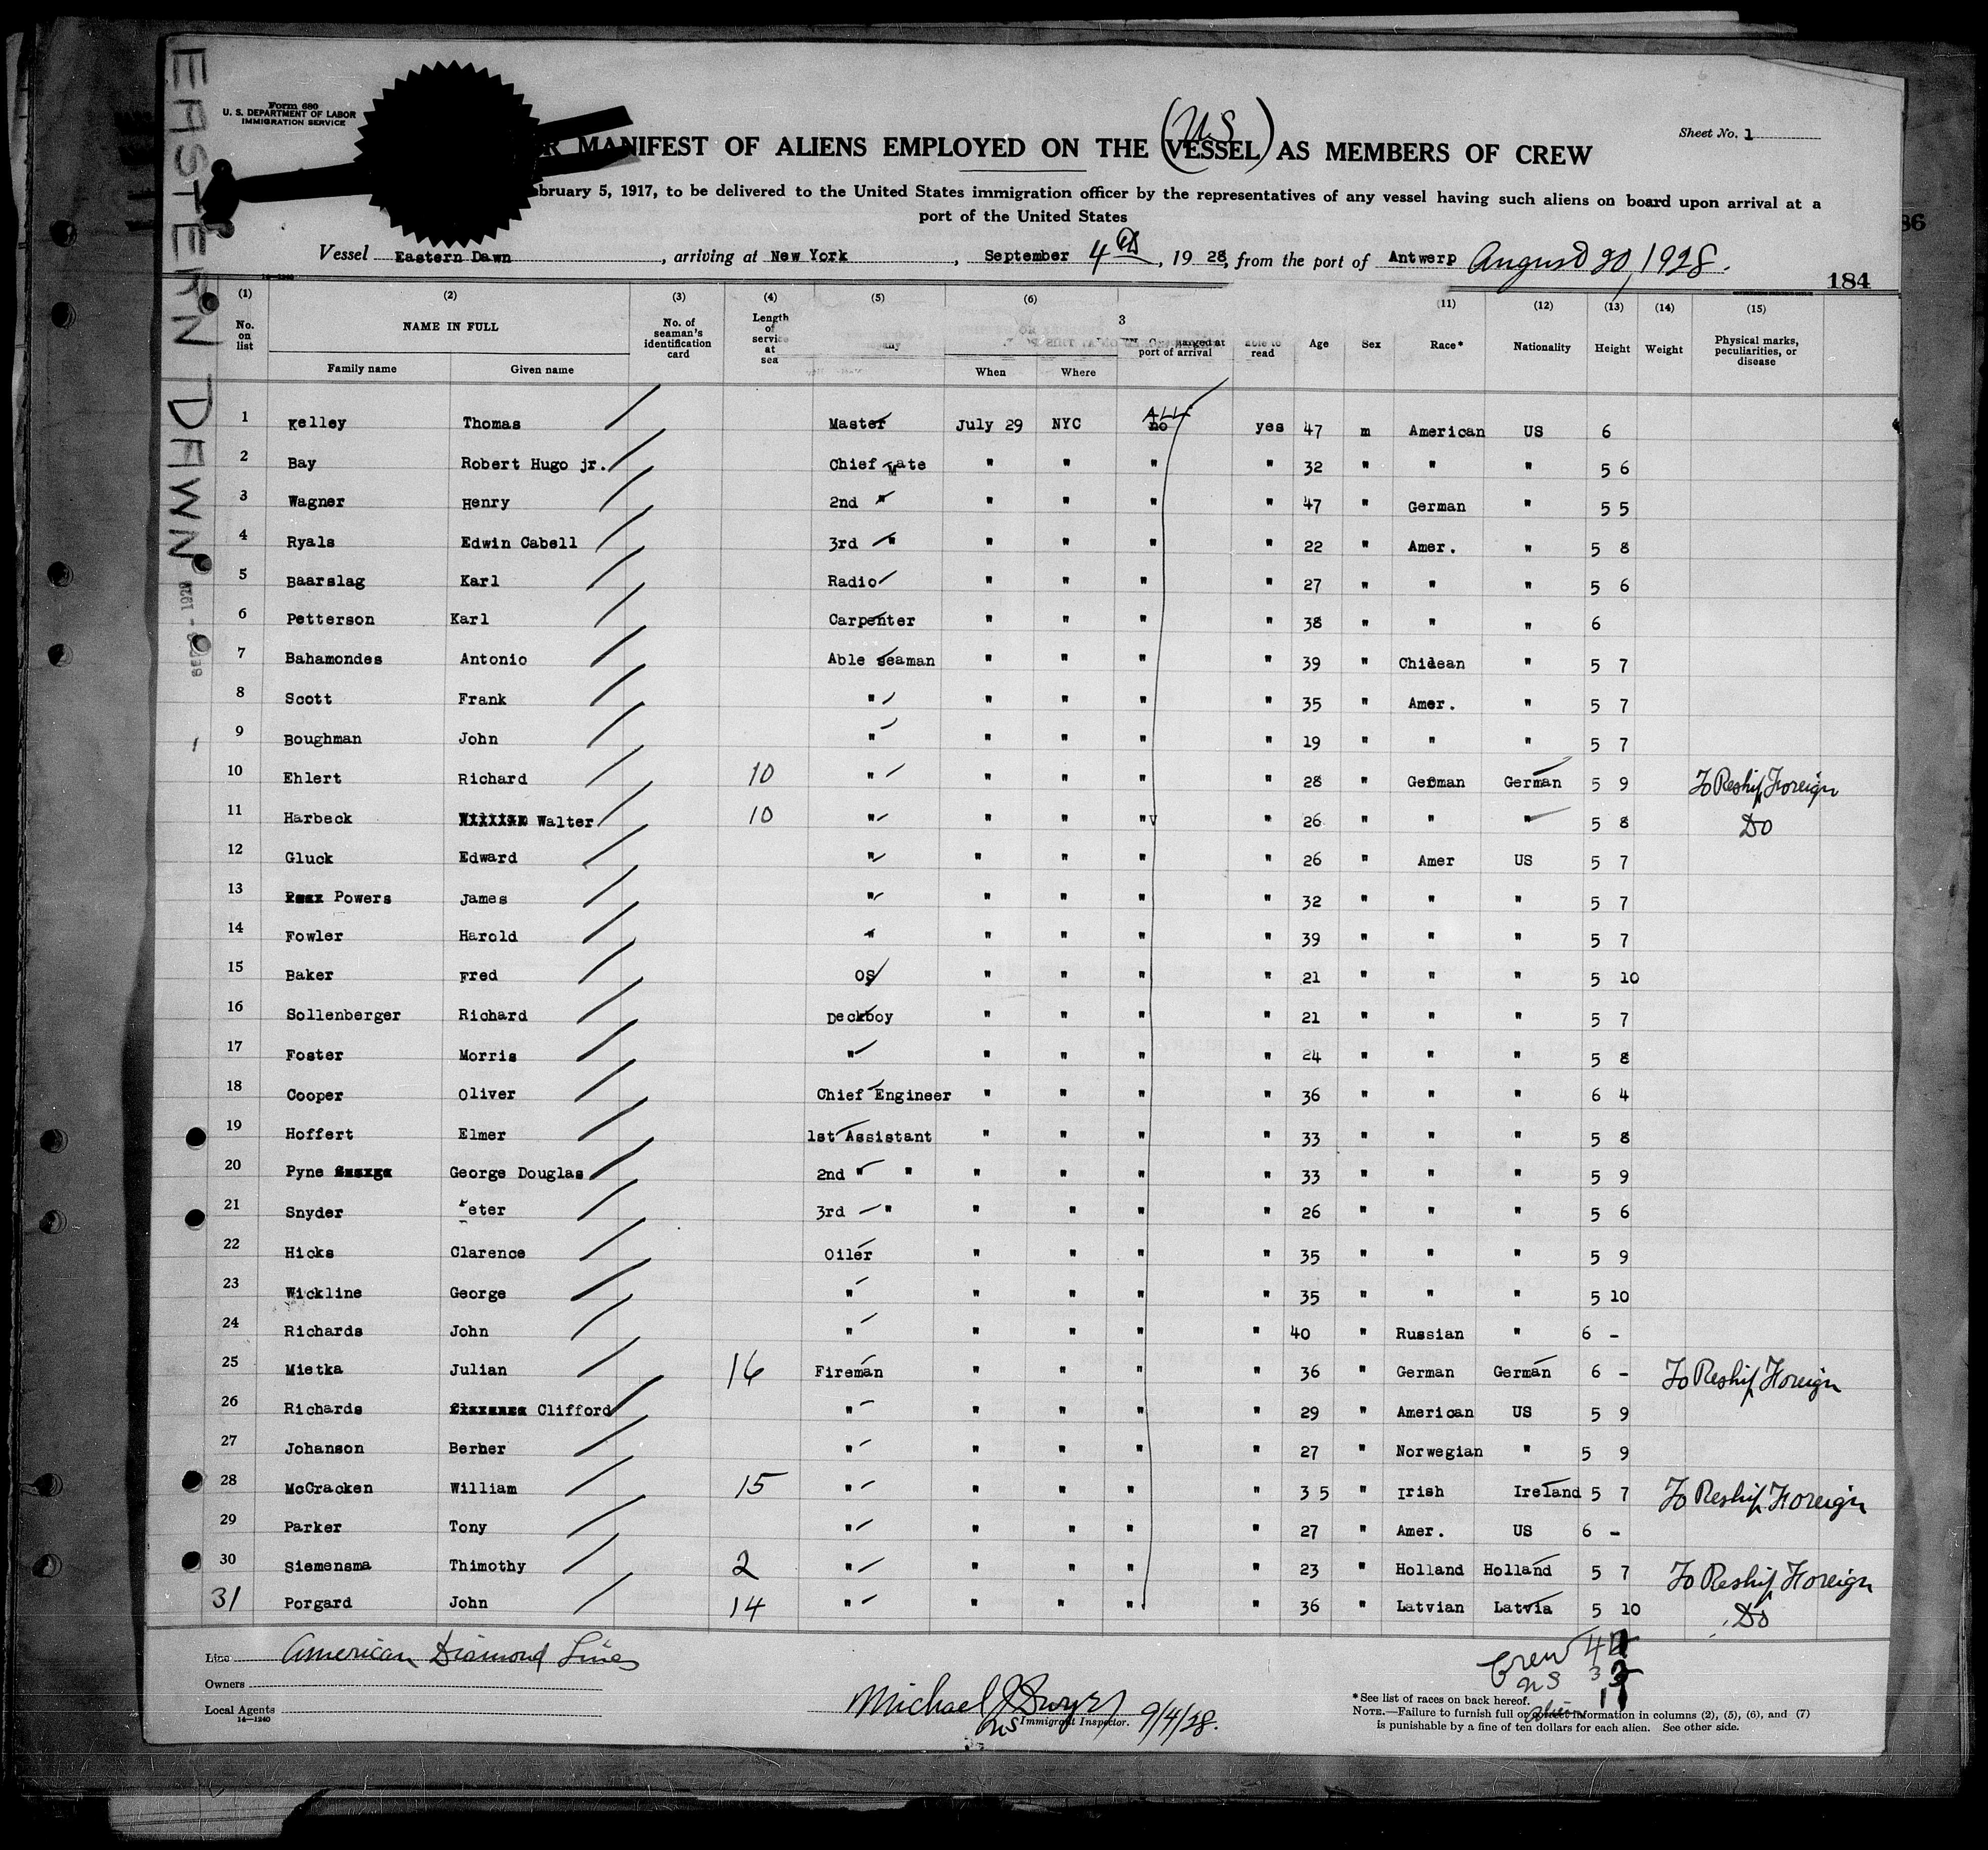 EASTERN DAWN
Form 680
U. S. DEPARTMENT OF LABOR
IMMIGRATION SERVICE
Sheet No. 1
R MANIFEST OF ALIENS EMPLOYED ON THE (VESSEL) AS MEMBERS OF CREW
US
bruary 5, 1917, to be delivered to the United States immigration officer by the representatives of any vessel having such aliens on board upon arrival at a
port of the United States
86
Vessel Eastern Dawn, arriving at New York, September 4th, 1928, from the port of Antwerp August 20, 1928.
184
(1) (2) (3) (4) (5) (6) 3 (11) (12) (13) (14) (15)
No. on list NAME IN FULL No. of seaman's identification card Length of service at sea port of arrival able to read Age Sex Race* Nationality Height Weight Physical marks, peculiarities, or disease
Family name Given name When Where
1 Kelley Thomas Master July 29 NYC ALL no yes 47 m American US 6
2 Bay Robert Hugo jr. Chief Mate " " " " 32 " " " 5 6
3 Wagner Henry 2nd " " " " " 47 " German " 5 5
4 Ryals Edwin Cabell 3rd " " " " " 22 " Amer. " 5 8
5 Baarslag Karl Radio " " " " 27 " " " 5 6
6 Petterson Karl Carpenter " " " " 38 " " " 6
7 Bahamondes Antonio Able seaman " " " " 39 " Chilean " 5 7
8 Scott Frank " " " " " 35 " Amer. " 5 7
9 Boughman John " " " " " 19 " " " 5 7
10 Ehlert Richard 10 " " " " " 28 " German German 5 9 To Reship Foreign
11 Harbeck Walter 10 " " " " " 26 " " " 5 8 Do
12 Gluck Edward " " " " " 26 " Amer US 5 7
13 Powers James " " " " " 32 " " " 5 7
14 Fowler Harold " " " " " 39 " " " 5 7
15 Baker Fred OS " " " " 21 " " " 5 10
16 Sollenberger Richard Deckboy " " " " 21 " " " 5 7
17 Foster Morris " " " " " 24 " " " 5 8
18 Cooper Oliver Chief Engineer " " " " 36 " " " 6 4
19 Hoffert Elmer 1st Assistant " " " " 33 " " " 5 8
20 Pyne George Douglas 2nd " " " " " " 33 " " " 5 9
21 Snyder Peter 3rd " " " " " 26 " " " 5 6
22 Hicks Clarence Oiler " " " " 35 " " " 5 9
23 Wickline George " " " " " 35 " " " 5 10
24 Richards John " " " " " 40 " Russian " 6 -
25 Mietka Julian 16 Fireman " " " " 36 " German German 6 - To Reship Foreign
26 Richards Clifford " " " " " 29 " American US 5 9
27 Johanson Berher " " " " " 27 " Norwegian " 5 9
28 McCracken William 15 " " " " " 35 " Irish Ireland 5 7 To Reship Foreign
29 Parker Tony " " " " " 27 " Amer. US 6 -
30 Siemensma Thimothy 2 " " " " " 23 " Holland Holland 5 7 To Reship Foreign
31 Porgard John 14 " " " " " 36 " Latvian Latvia 5 10 Do
Line American Diamond Lines
Owners
Local Agents
14—1240
Michael J Dwyer
US Immigrant Inspector. 9/4/28.
Crew
US
alien
*See list of races on back hereof.
NOTE.—Failure to furnish full or information in columns (2), (5), (6), and (7)
is punishable by a fine of ten dollars for each alien. See other side.